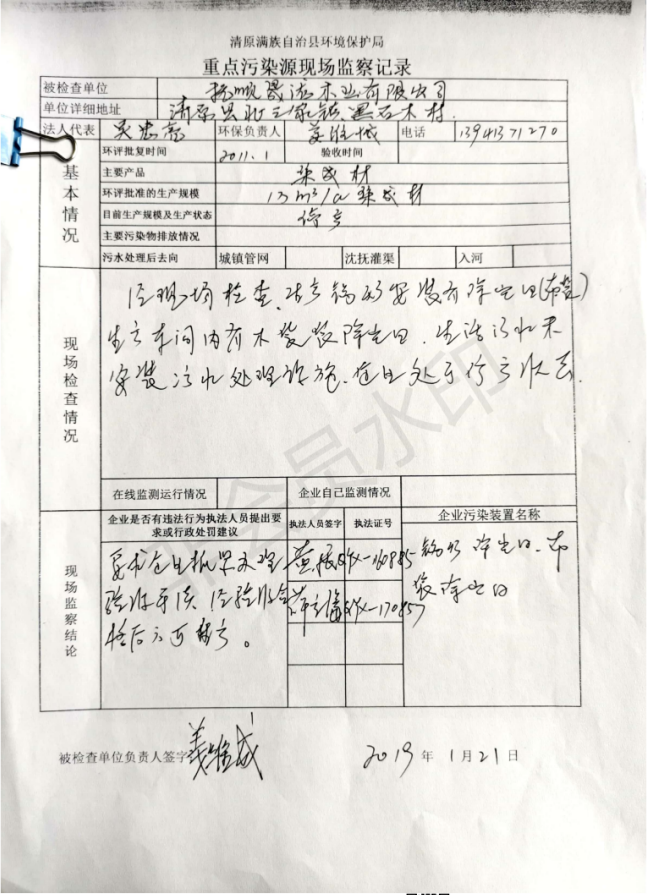 清原满族自治县环境保护局
重点污染源现场监察记录
被检查单位 抚顺 木业有限公司
单位详细地址 清原县北三家镇黑石木村
法人代表 吴忠 环保负责人 电话 13941371270
环评批复时间 2011.1 验收时间
基本情况
主要产品 集成材
环评批准的生产规模 m³/a 集成材
目前生产规模及生产状态 停产
主要污染物排放情况
污水处理后去向 城镇管网 沈抚灌渠 入河
现场检查情况
经现场检查, 锅炉安装有除尘口(布袋)
生产车间内有木袋装除尘口, 生活污水未
安装污水处理设施, 处于停产状态.
在线监测运行情况 企业自己监测情况
现场监察结论
企业是否有违法行为执法人员提出要求或行政处罚建议 执法人员签字 执法证号 企业污染装置名称
要求企业抓紧办理
验收手续, 经验收合
格后方可 产。
-170857
锅炉除尘口, 布
袋除尘口
被检查单位负责人签字 2019年1月21日
非会员水印